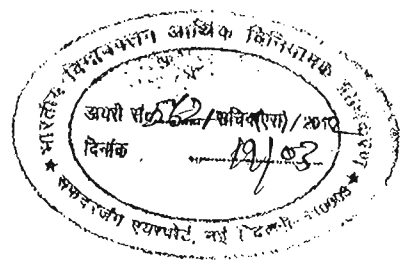 भारतीय विमानपत्तन आर्थिक विनियामक प्राधिकरण
डायरी सं० 562/सचिव(एरा)/2012
दिनांक 19/03
★ सफदरजंग एयरपोर्ट, नई दिल्ली-110003 ★